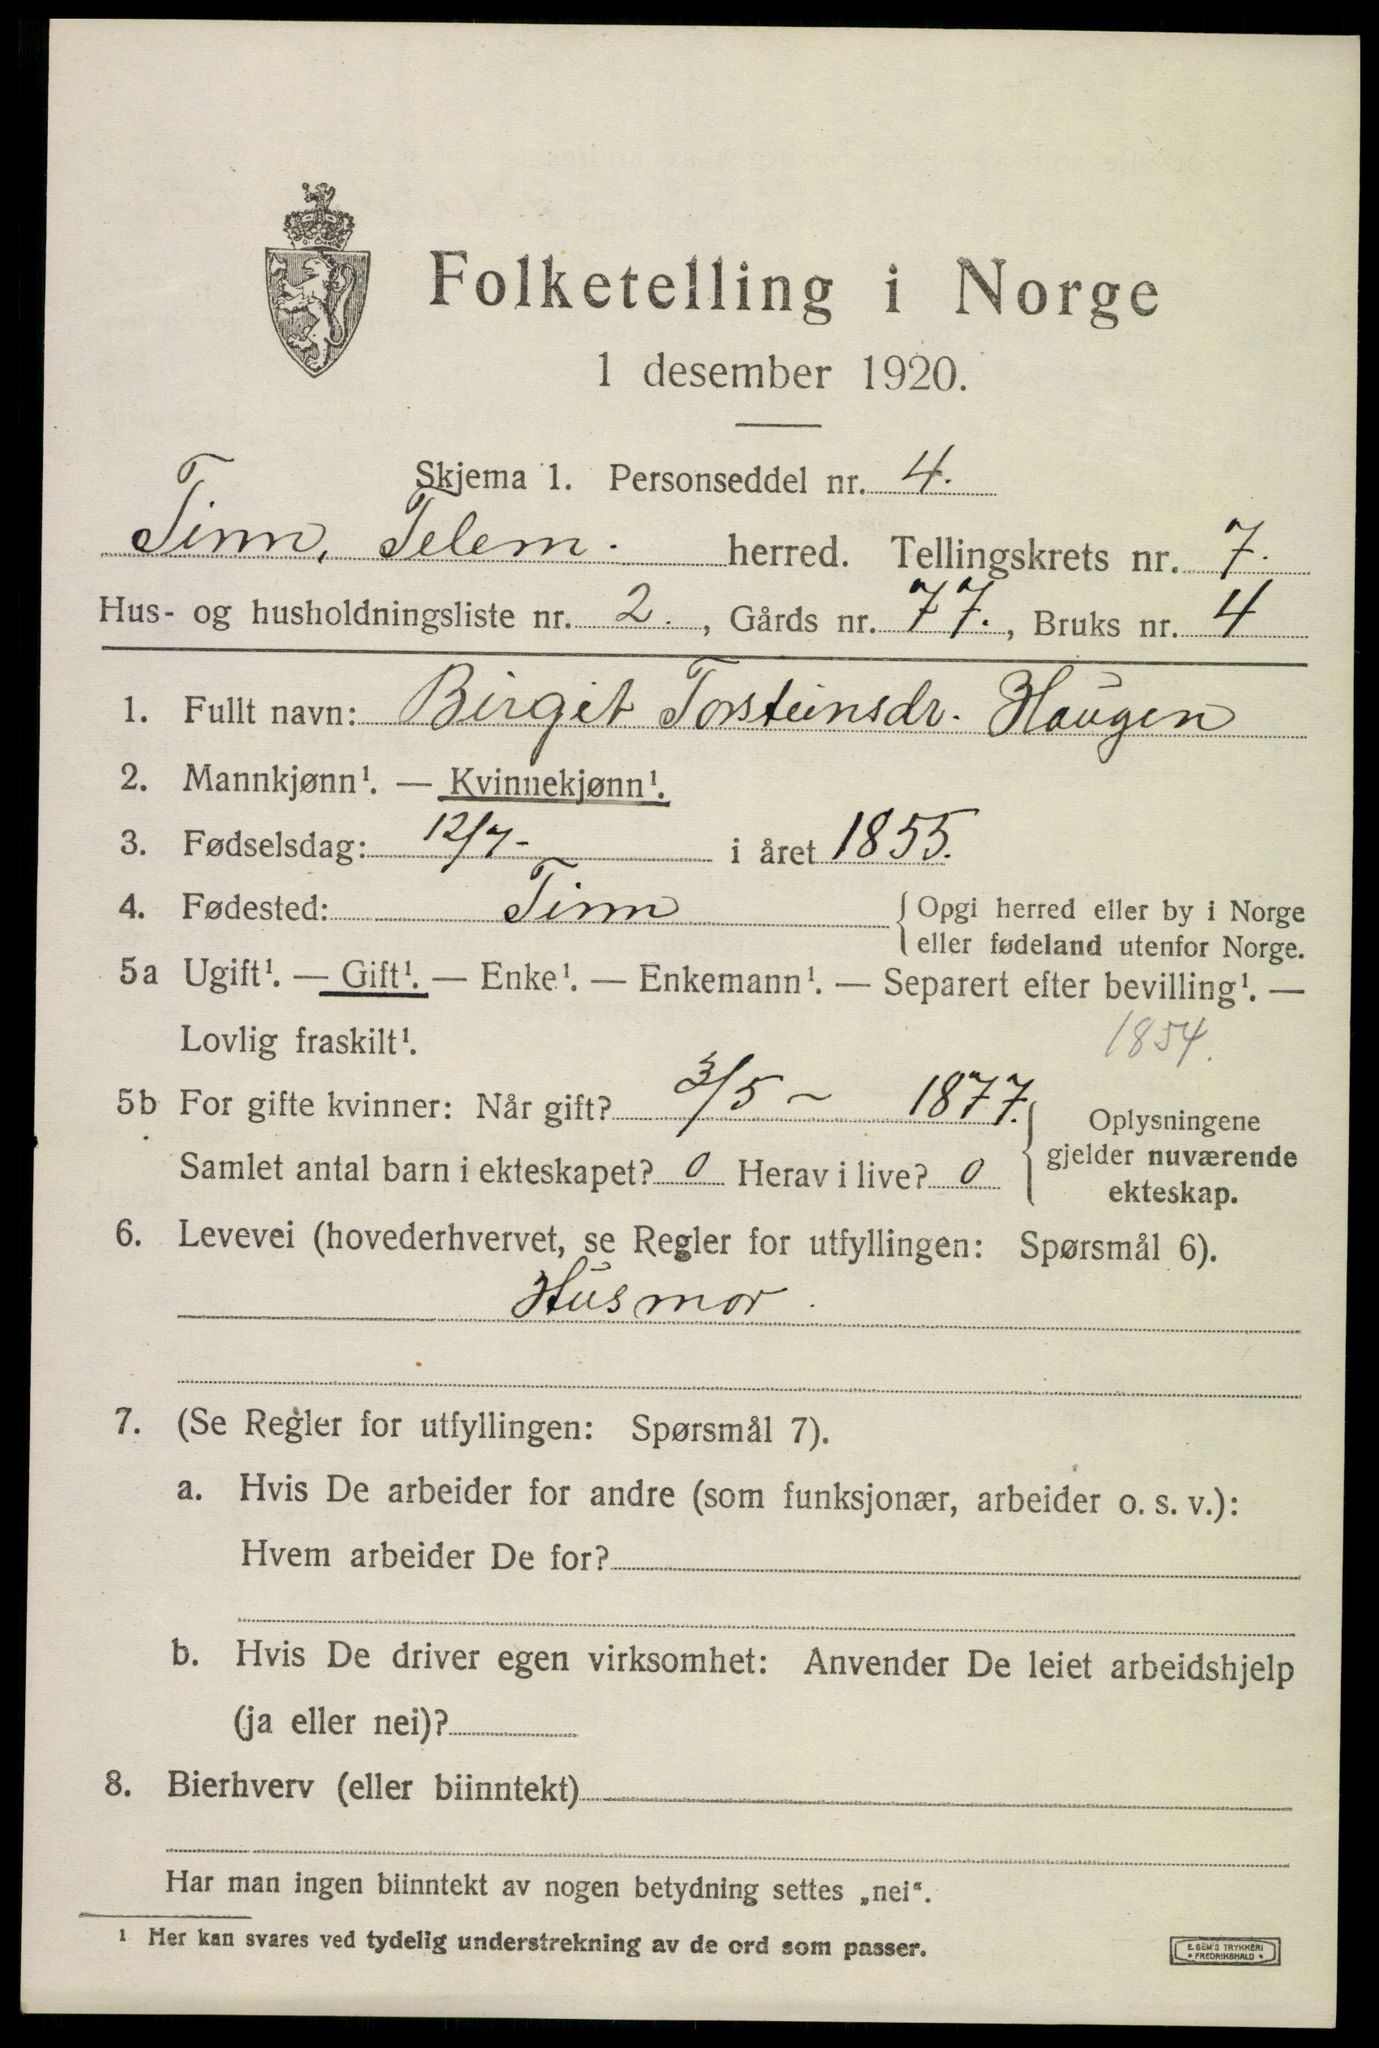 Folketelling i Norge
1 desember 1920.
Skjema 1. Personseddel nr. 4.
Tinn, Telem. herred. Tellingskrets nr. 7.
Hus- og husholdningsliste nr. 2., Gårds nr. 77., Bruks nr. 4
1. Fullt navn: Birgit Torsteinsdr. Haugen
2. Mannkjønn¹. — Kvinnekjønn¹.
3. Fødselsdag: 12/7- i året 1855.
4. Fødested: Tinn { Opgi herred eller by i Norge
eller fødeland utenfor Norge.
5a Ugift¹. — Gift¹. — Enke¹. — Enkemann¹. — Separert efter bevilling¹. —
Lovlig fraskilt¹. 1854.
5b For gifte kvinner: Når gift? 3/5 - 1877.
Samlet antal barn i ekteskapet? 0 Herav i live? 0
Oplysningene
gjelder nuværende
ekteskap.
6. Levevei (hovederhvervet, se Regler for utfyllingen: Spørsmål 6).
Husmor.
7. (Se Regler for utfyllingen: Spørsmål 7).
a. Hvis De arbeider for andre (som funksjonær, arbeider o. s. v.):
Hvem arbeider De for?
b. Hvis De driver egen virksomhet: Anvender De leiet arbeidshjelp
(ja eller nei)?
8. Bierhverv (eller biinntekt)
Har man ingen biinntekt av nogen betydning settes „nei“.
¹ Her kan svares ved tydelig understrekning av de ord som passer.
E. SEM'S TRYKKERI
* FREDRIKSHALD *